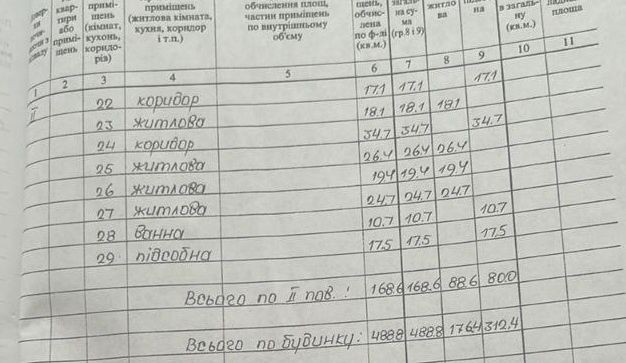 примі- щень (кімнат, кухонь, коридо- рів)
квар- тири або примі- щень
приміщень (житлова кімната, кухня, коридор і т.п.)
обчислення площ, частин приміщень по внутрішньому об'єму
щень, обчис- лена по ф-лі (кв.м.)
загаль- на су- ма (гр.8 і 9)
житло ва
на
в загаль- ну (кв.м.)
площа
1 2 3 4 5 6 7 8 9 10 11
II 22 коридор 17.1 17.1 17.1
23 житлова 18.1 18.1 18.1
24 коридор 34.7 34.7 34.7
25 житлова 26.4 26.4 26.4
26 житлова 19.4 19.4 19.4
27 житлова 24.7 24.7 24.7
28 ванна 10.7 10.7 10.7
29 підсобна 17.5 17.5 17.5
Всього по II пов.: 168.6 168.6 88.6 80.0
Всього по будинку: 488.8 488.8 176.4 312.4